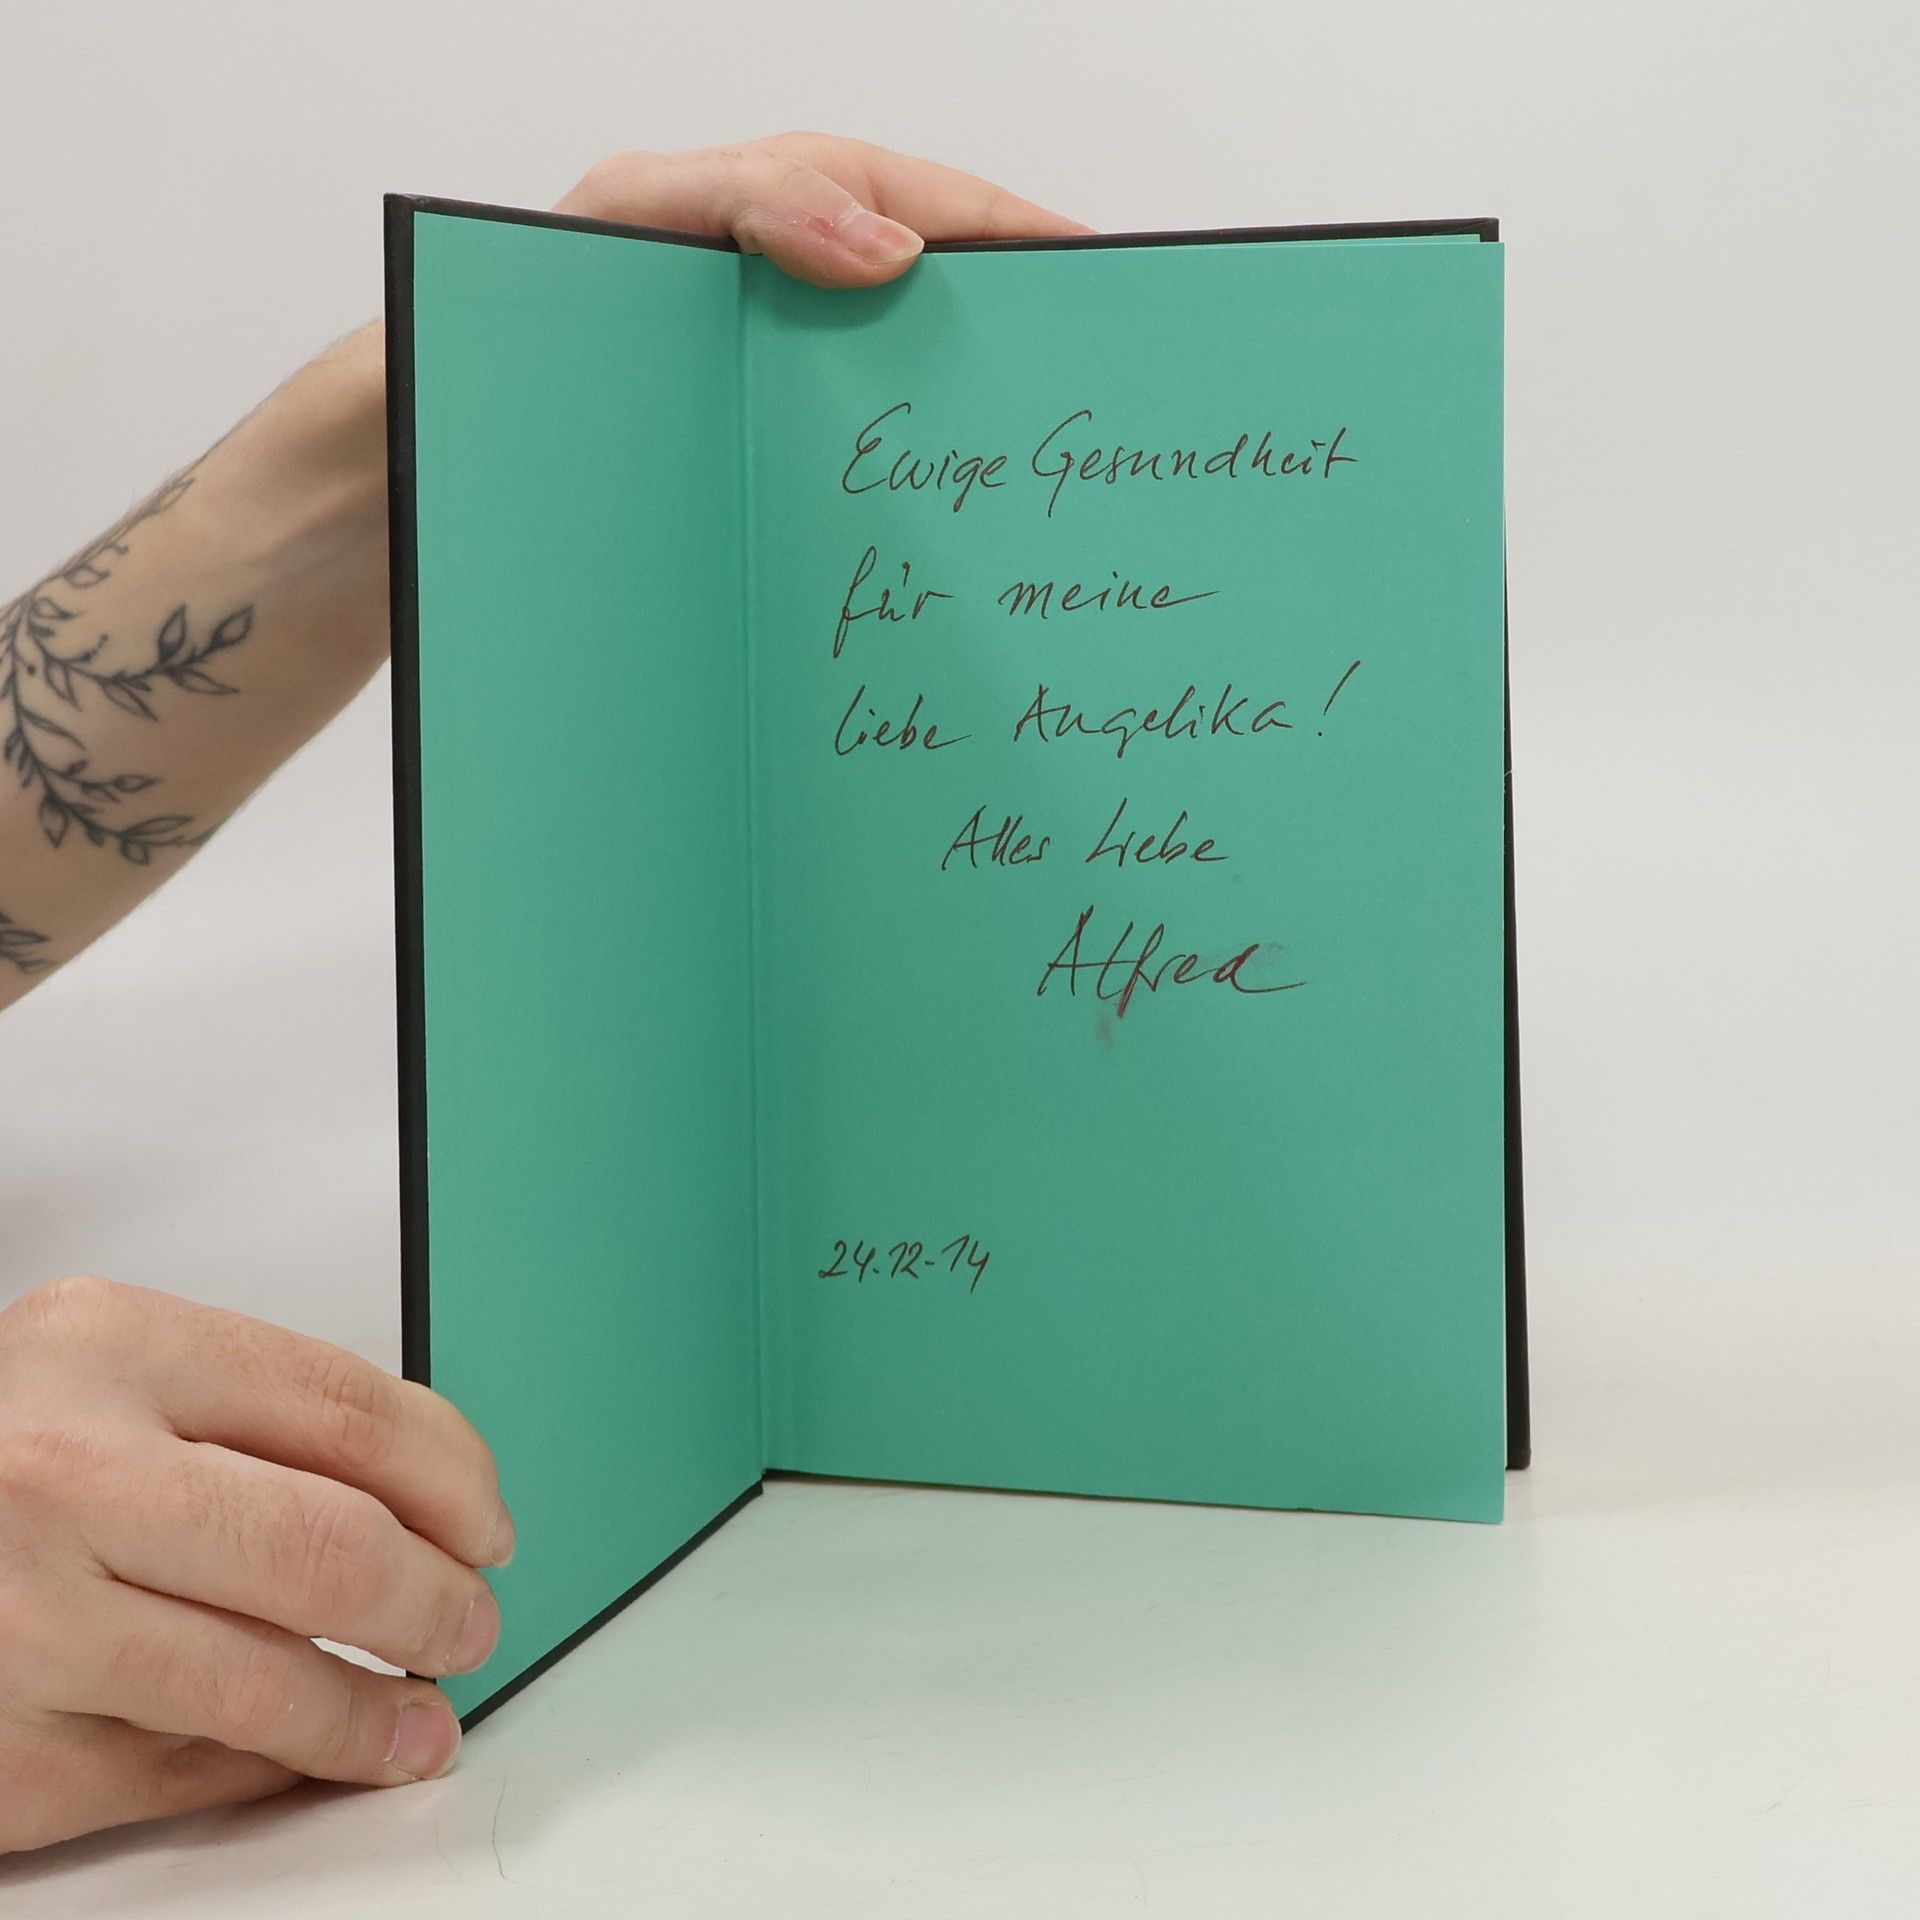 Ewige Gesundheit
für meine
liebe Angelika!
Alles Liebe
Alfred
24.12-14